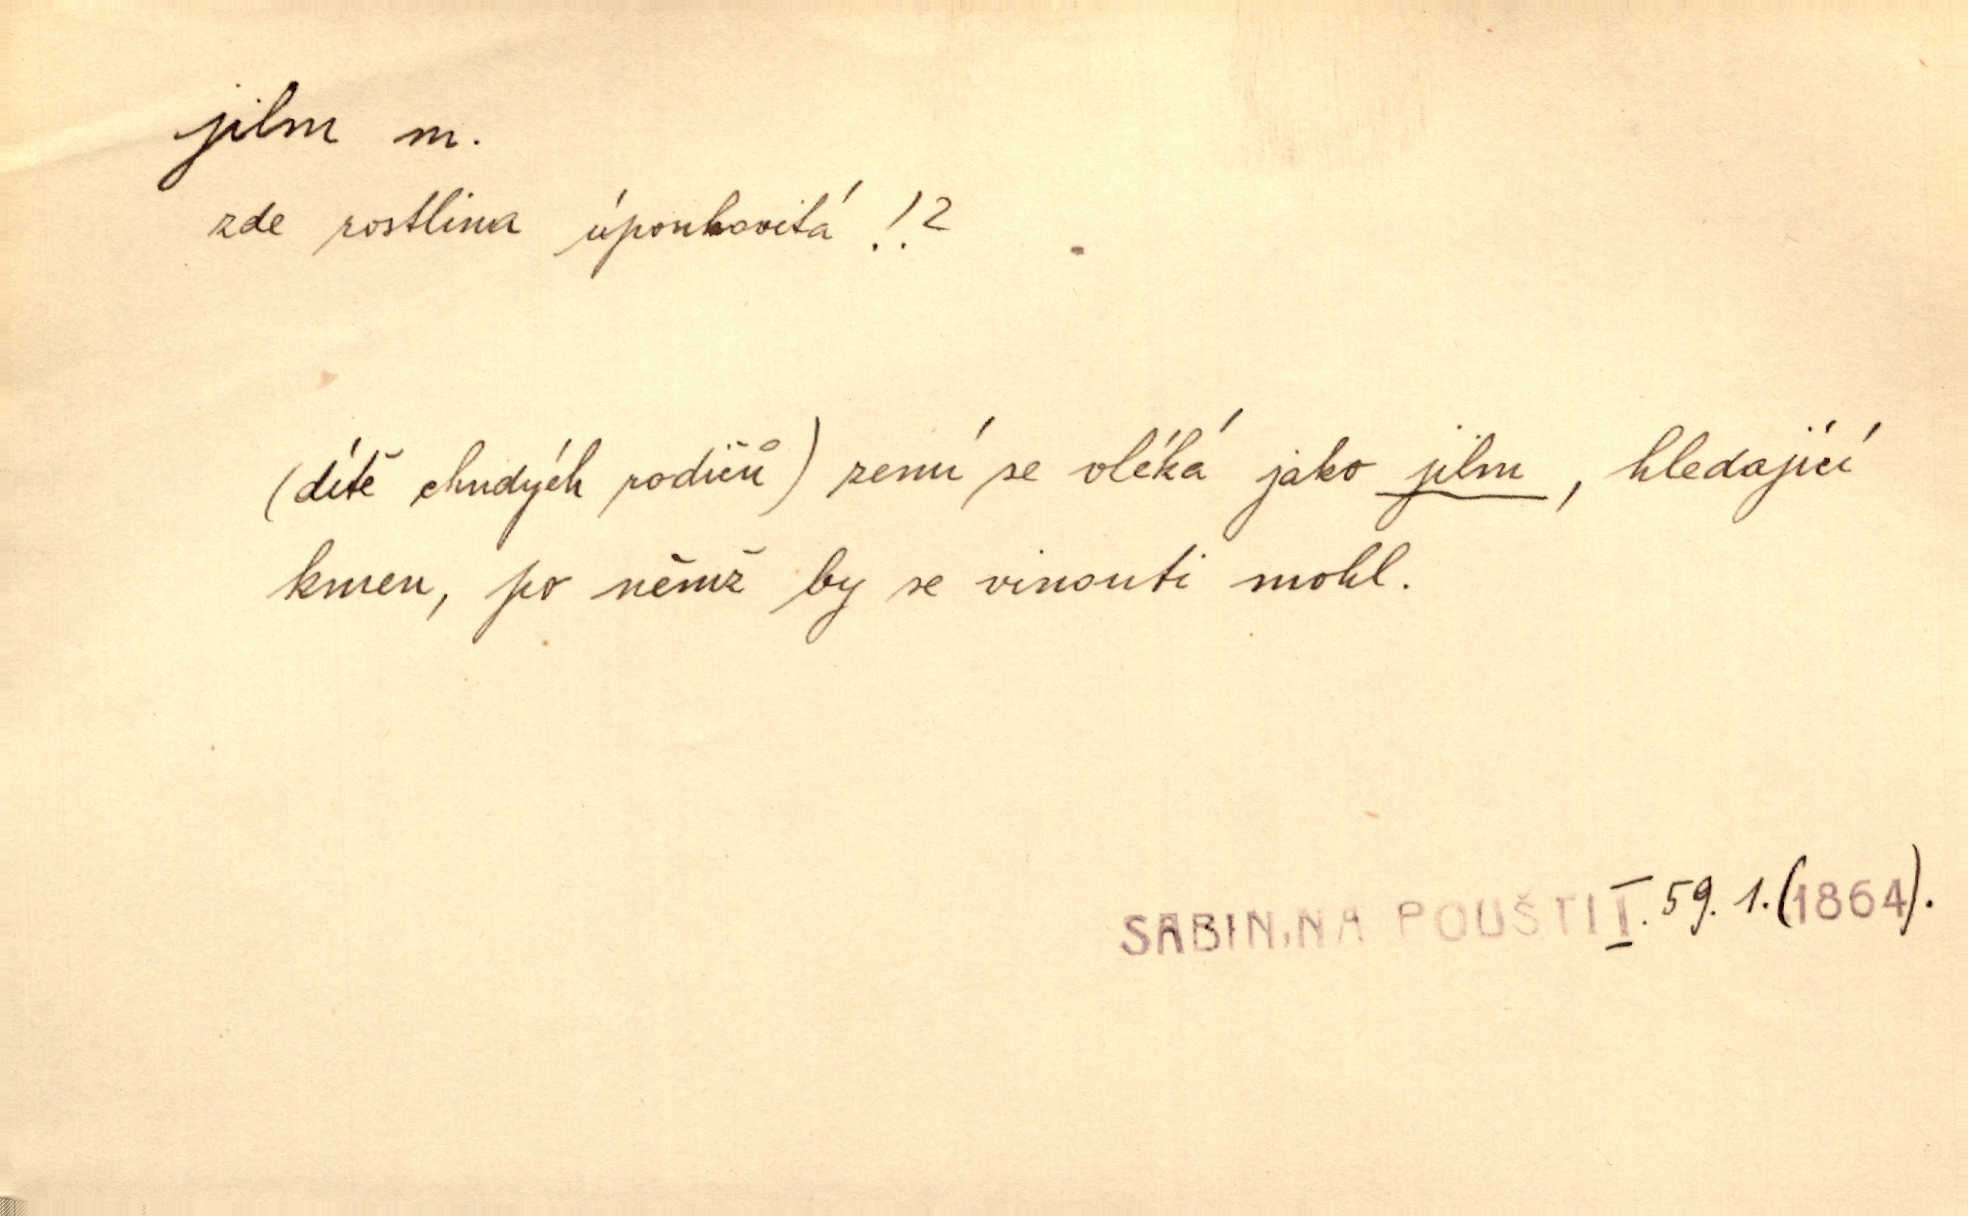 jilm m.
zde rostlina úponkovitá !?
(dítě chudých rodičů) zemí se vléká jako jilm, hledající
kmen, po němž by se vinouti mohl.
SABIN, NA POUŠTI I. 59. 1. (1864).